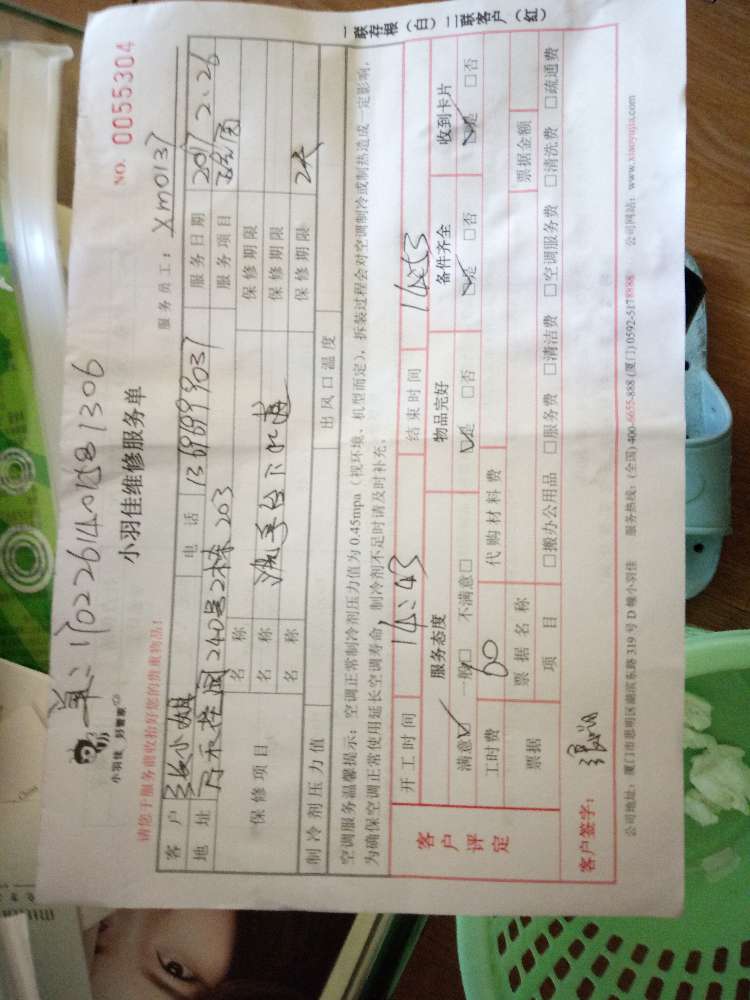 单:1702261401581306
小羽佳 好管家
小羽佳维修服务单
NO. 0055304
请您于服务前收拾好您的贵重物品!
服务员工: Xm0137
客户 张小姐 电话 13696999037 服务日期 2017.2.26
地址 240号2栋203 服务项目
保修项目 名称 洗手台下水道 保修期限
名称 保修期限
名称 保修期限 2天
制冷剂压力值 出风口温度
空调服务温馨提示:空调正常制冷剂压力值为0.45mpa(视环境、机型而定),拆装过程会对空调制冷或制热造成一定影响,
为确保空调正常使用延长空调寿命,制冷剂不足时请及时补充。
客户评定
开工时间 14:43 结束时间 14:53
服务态度 物品完好 备件齐全 收到卡片
满意☑ 一般□ 不满意□ ☑是 □否 ☑是 □否 ☑是 □否
工时费 60 代购材料费
票据 票据名称 票据金额
项目 □搬办公用品 □服务费 □清洁费 □空调服务费 □清洗费 □疏通费
客户签字:
公司地址:厦门市思明区湖滨东路319号D幢小羽佳 服务热线:(全国)400-6655-888 (厦门)0592-5178888 公司网站:www.xiaoyujia.com
一联存根(白)二联客户(红)